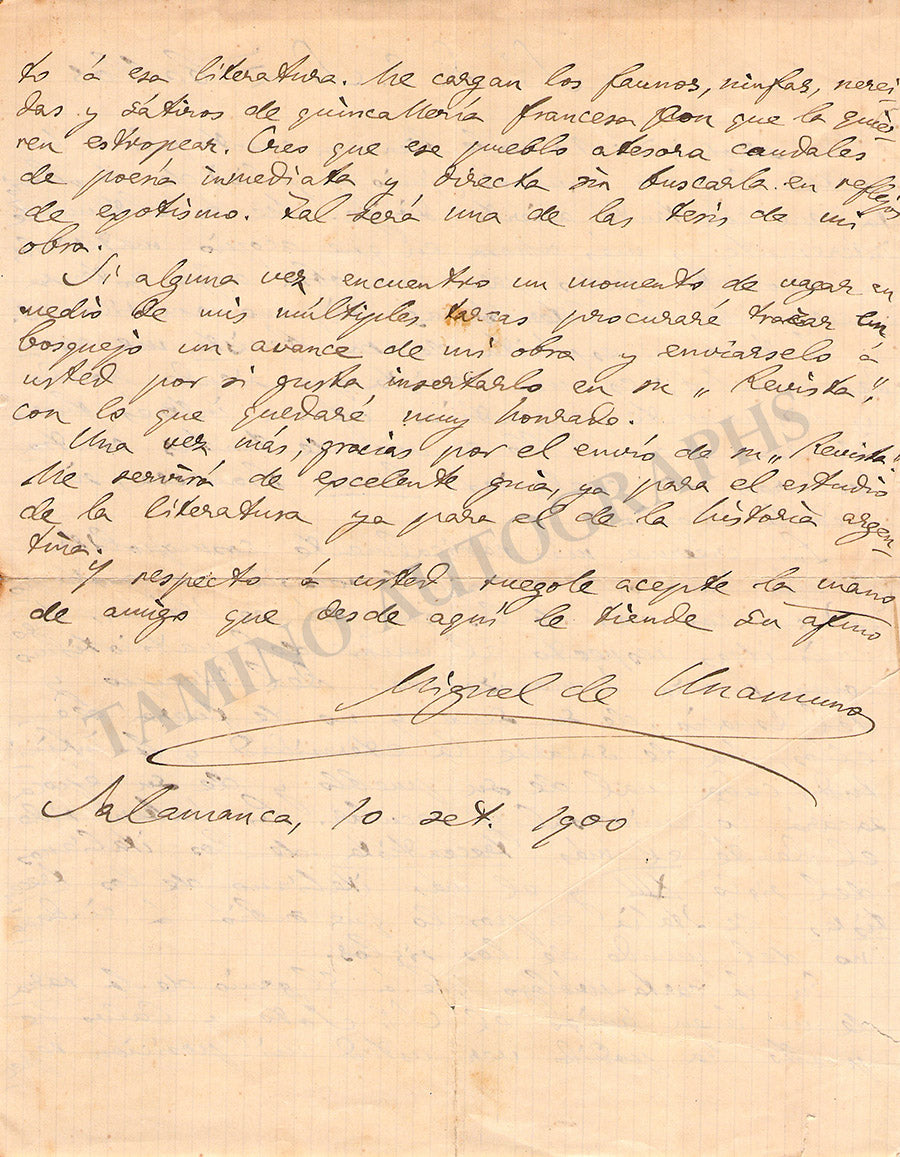 to á esa literatura. Me cargan los faunos, ninfas, nerei-
das y sátiros de quincallería francesa con que la quie-
ren estropear. Creo que ese pueblo atesora caudales
de poesía inmediata y directa sin buscarla en reflejos
de exotismo. Tal será una de las tesis de mi
obra.
Si alguna vez encuentro un momento de vagar en
medio de mis múltiples tareas procuraré trazar en
bosquejo un avance de mi obra y enviárselo á
usted por si gusta insertarlo en su „Revista”,
con lo que quedaré muy honrado.
Una vez más, gracias por el envío de su „Revista”.
Me servirá de excelente guía, ya para el estudio
de la literatura ya para el de la historia argen-
tina.
Y respecto á usted ruegole acepte la mano
de amigo que desde aquí le tiende su afmo
Miguel de Unamuno
Salamanca, 10 set. 1900
TAMINO AUTOGRAPHS